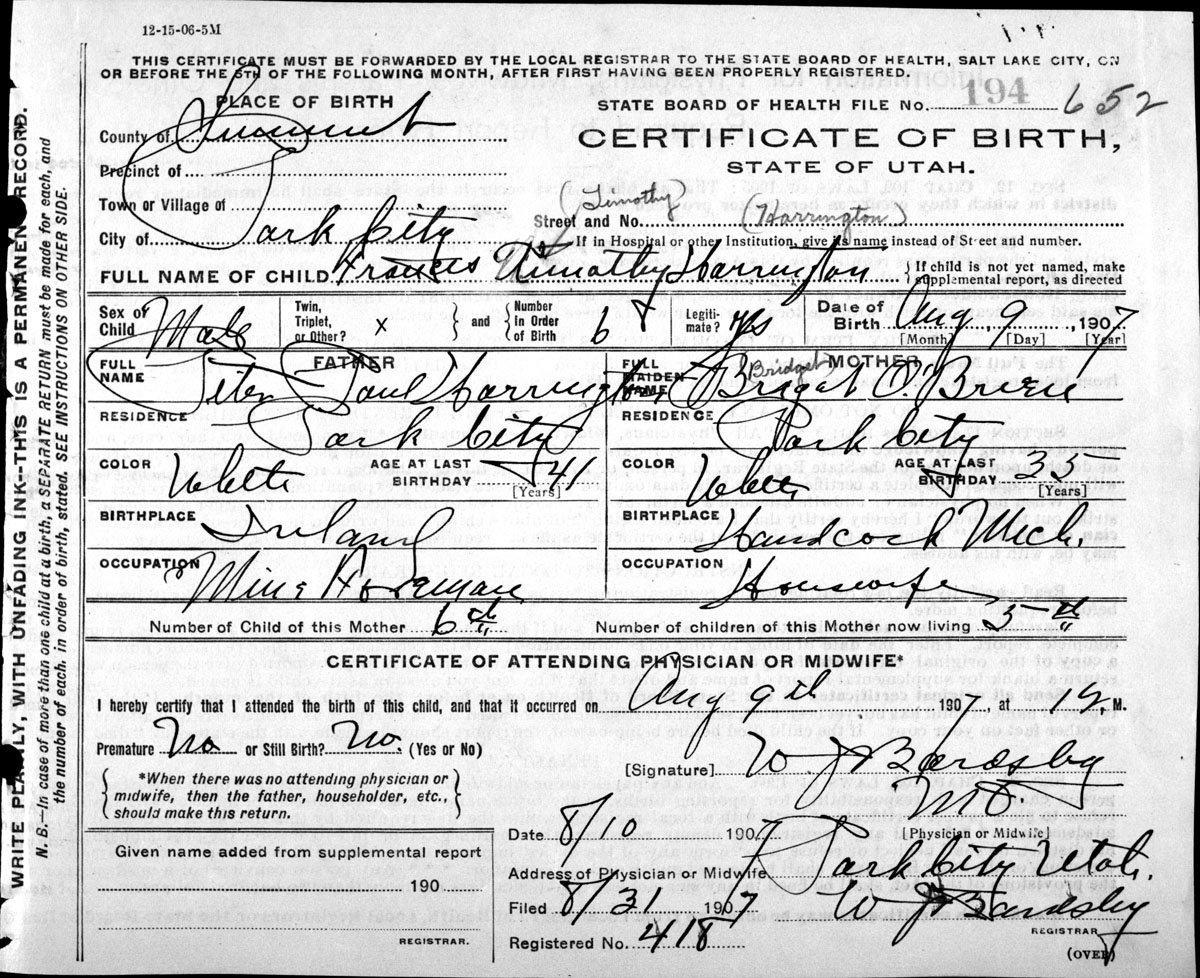 12-15-06-5M
THIS CERTIFICATE MUST BE FORWARDED BY THE LOCAL REGISTRAR TO THE STATE BOARD OF HEALTH, SALT LAKE CITY, ON
OR BEFORE THE 5TH OF THE FOLLOWING MONTH, AFTER FIRST HAVING BEEN PROPERLY REGISTERED.
PLACE OF BIRTH
STATE BOARD OF HEALTH FILE No. 194 652
County of Summit
CERTIFICATE OF BIRTH,
STATE OF UTAH.
Precinct of
Town or Village of
(Timothy) (Harrington)
Street and No.
City of Park City
If in Hospital or other Institution, give its name instead of Street and number.
FULL NAME OF CHILD Francis Timothy Harrington { If child is not yet named, make supplemental report, as directed
Sex of Child Male Twin, Triplet, or Other? x } and { Number In Order of Birth 6 Legiti- mate? yes Date of Birth Aug 9, 1907
[Month] [Day] [Year]
FATHER
FULL NAME Peter Paul Harrington
MOTHER
FULL MAIDEN NAME Bridget O'Brien
(Bridget)
RESIDENCE Park City
RESIDENCE Park City
COLOR White AGE AT LAST BIRTHDAY 41 [Years]
COLOR White AGE AT LAST BIRTHDAY [Years]
BIRTHPLACE Ireland
BIRTHPLACE Handcock Mich.
OCCUPATION Mine Foreman
OCCUPATION Housewife
Number of Child of this Mother 6th
Number of children of this Mother now living 5th
CERTIFICATE OF ATTENDING PHYSICIAN OR MIDWIFE*
I hereby certify that I attended the birth of this child, and that it occurred on Aug 9th, 1907, at 12, M.
Premature No or Still Birth? No. (Yes or No)
[Signature] W J Bardsby
{ *When there was no attending physician or midwife, then the father, householder, etc., should make this return. }
[Physician or Midwife]
Date 8/10 1907
Given name added from supplemental report
190
REGISTRAR.
Address of Physician or Midwife Park City Utah.
Filed 8/31 1907 W J Bardsby
REGISTRAR
Registered No. 418
(OVER)
WRITE PLAINLY, WITH UNFADING INK--THIS IS A PERMANENT RECORD.
N. B.--In case of more than one child at a birth, a SEPARATE RETURN must be made for each, and
the number of each, in order of birth, stated. SEE INSTRUCTIONS ON OTHER SIDE.